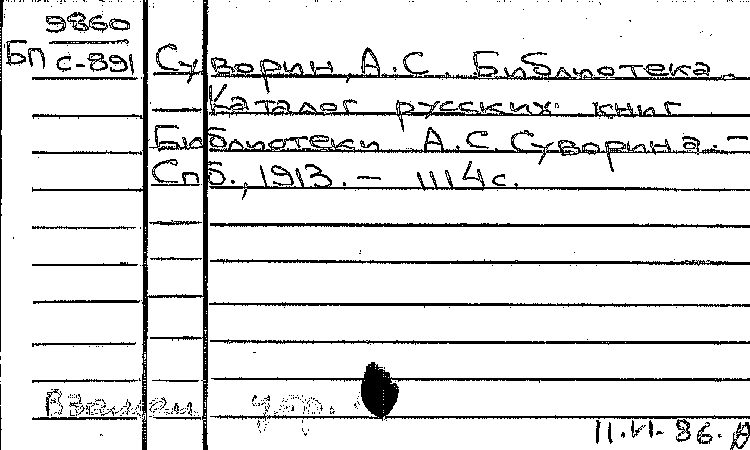 9860
БП С-891
Суворин, А.С. Библиотека.
Каталог русских книг
Библиотеки А.С. Суворина. –
Спб., 1913. – 1114с.
Взамен утр.
11.VI.86.